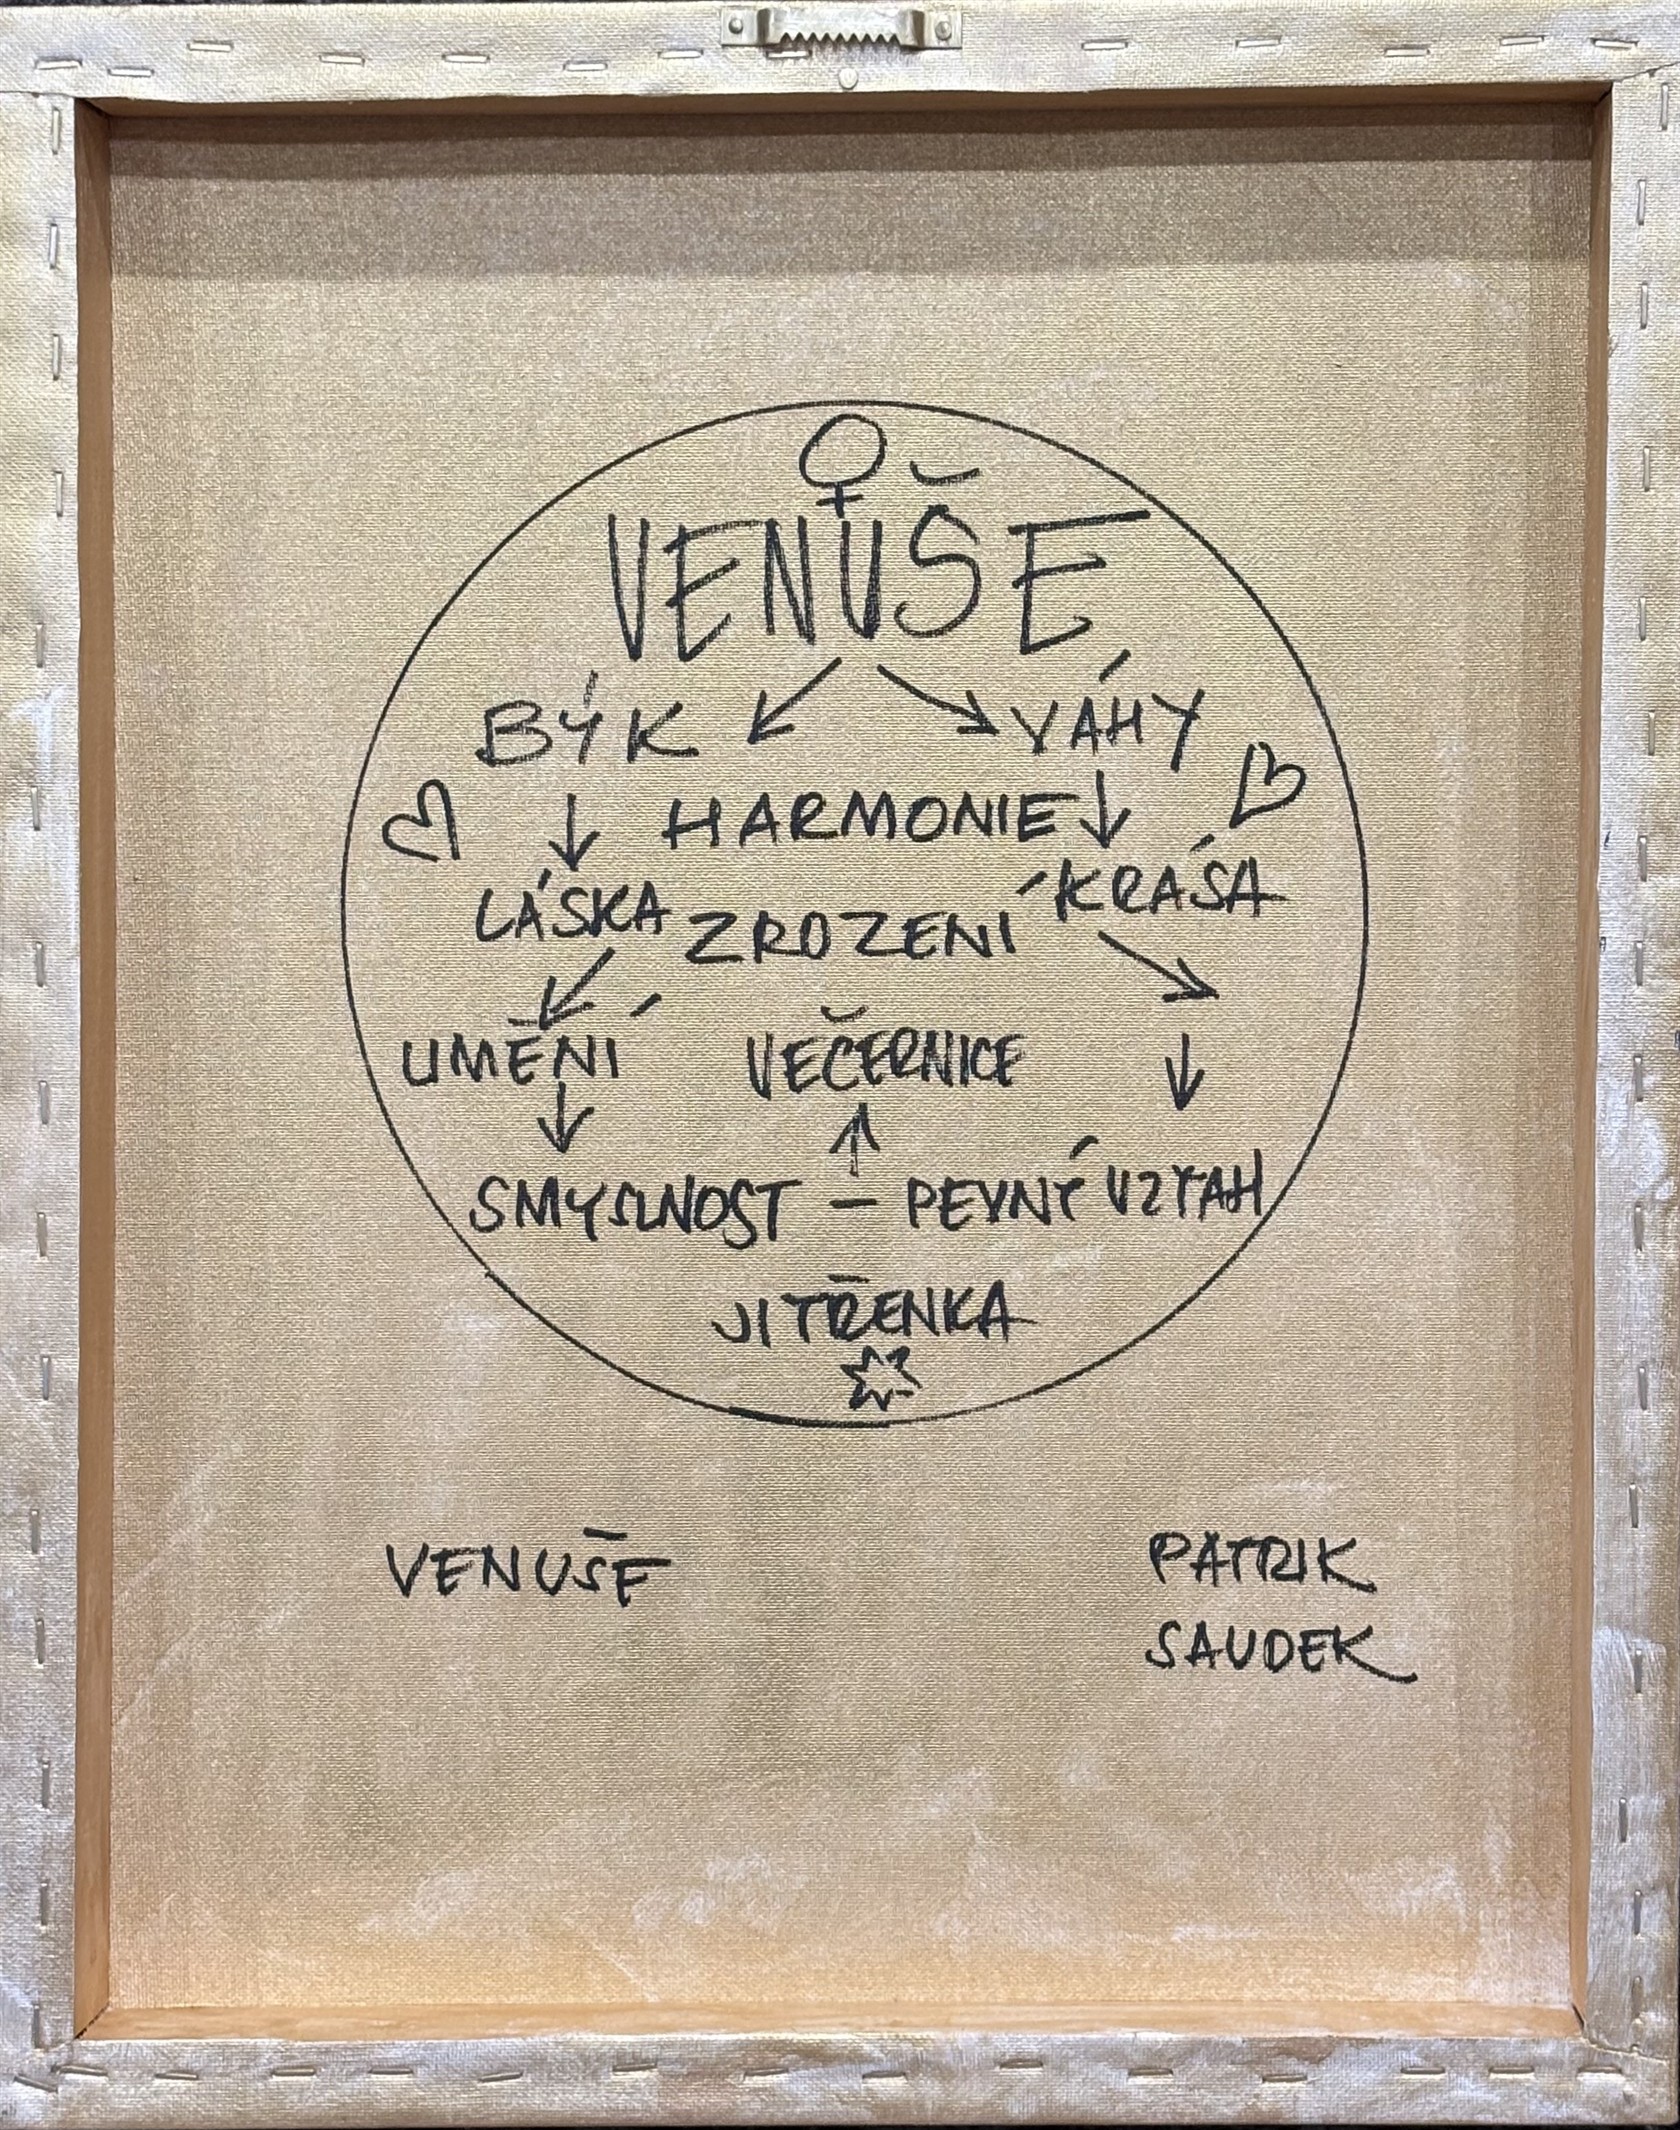 ♀
VENUŠE
BÝK VÁHY
HARMONIE
LÁSKA ZROZENÍ KRÁSA
UMĚNÍ VEČERNICE
SMYSLNOST — PEVNÝ VZTAH
JITŘENKA
VENUŠE
PATRIK
SAUDEK